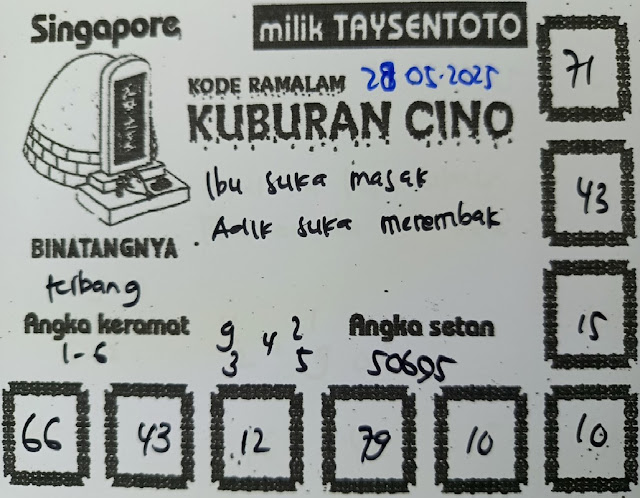 Singapore,
milik TAYSENTOTO
71
KODE RAMALAM 28 05.2025
KUBURAN CINO
Ibu suka masak
43
Adik suka merembak
BINATANGNYA
terbang
Angka keramat
1-6
9 4 2
3 5
Angka setan
50695
15
66 43 12 79 10 10